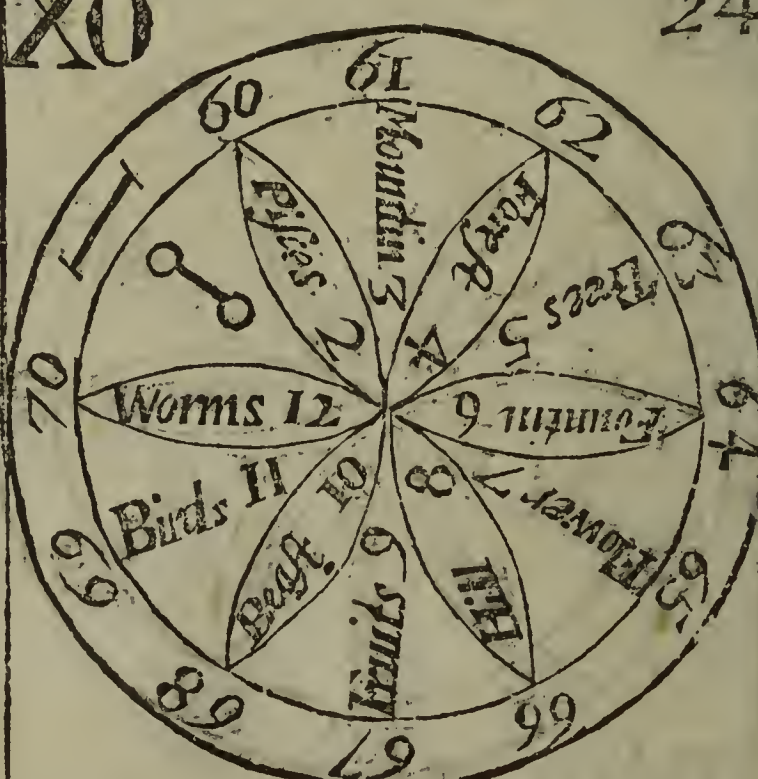 XO
24
60
61
62
63
64
65
66
67
68
69
70
I
2
Mountin 3
4
Trees 5
Fountin 6
Flower 7
Hill 8
Fruits 9
Beaſt. 10
Birds 11
Worms 12